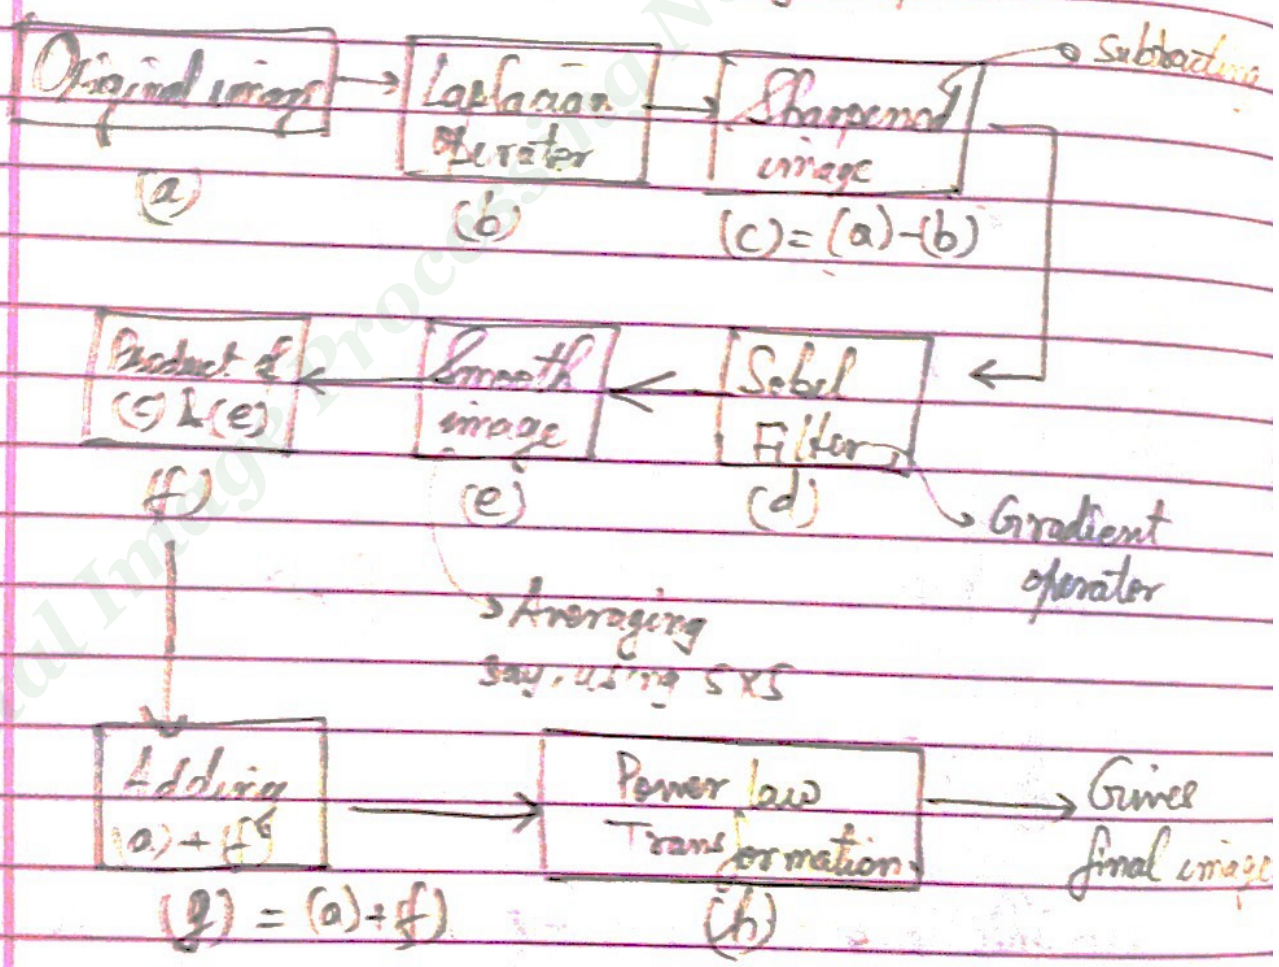 Original image
(a)
Laplacian
operator
(b)
Sharpened
image
(c) = (a) - (b)
Subtracting
Sobel
Filter
(d)
Gradient
operator
Smooth
image
(e)
Averaging
say, using 5x5
Product of
(c) & (e)
(f)
Adding
(a) + (f)
(g) = (a) + f)
Power law
Transformation
(h)
Gives
final image